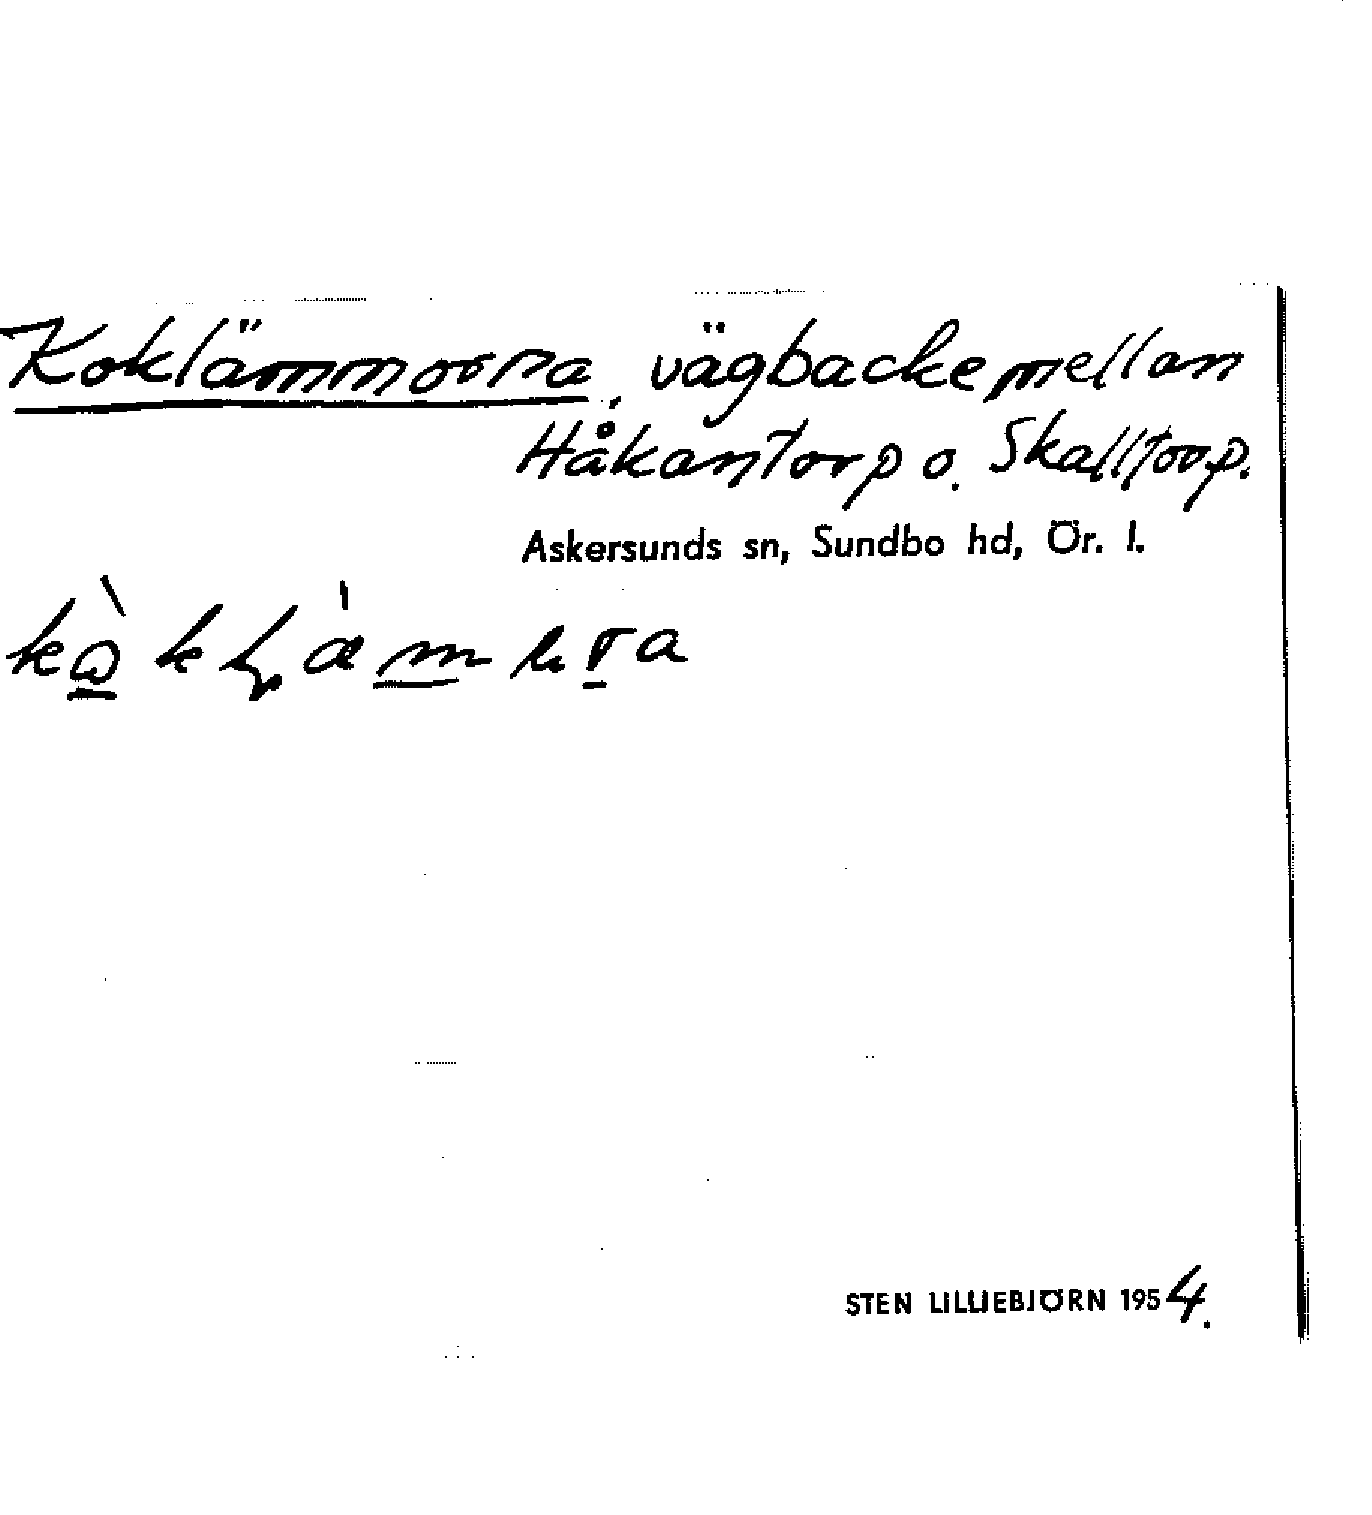 Koklämmorna, vägbacke mellan
Håkantorp o. Skalltorp.
Askersunds sn, Sundbo hd, Ör. l.
STEN LILLIEBJÖRN 1954.